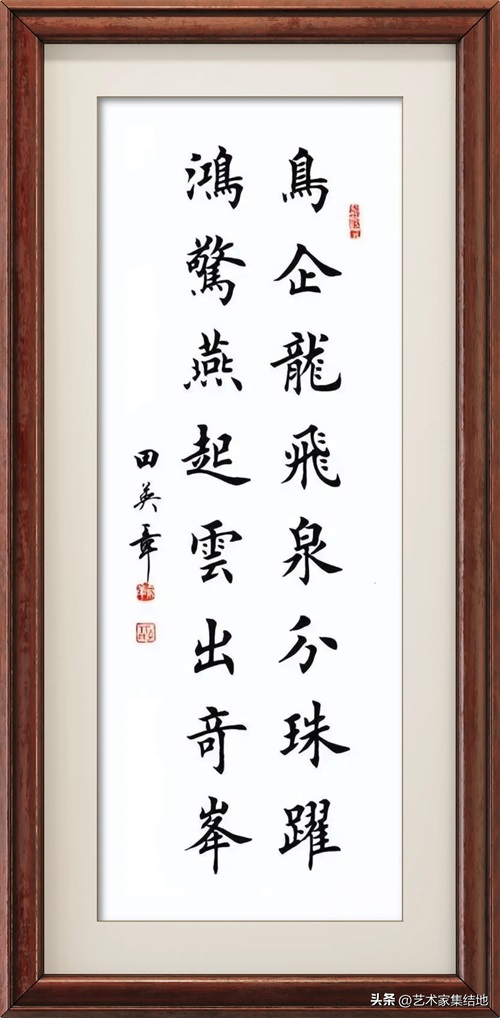 鳥企龍飛泉分珠躍
鴻驚燕起雲出奇峯
田英章
头条 @艺术家集结地